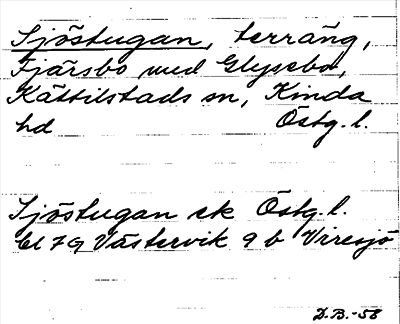 Sjöstugan, terräng,
Fjärsbo med Glysebo,
Kättilstads sn, Kinda
hd Östg. l.
Sjöstugan ek Östg. l.
bl 7 G Västervik 9 b Viresjö
D.B.-58